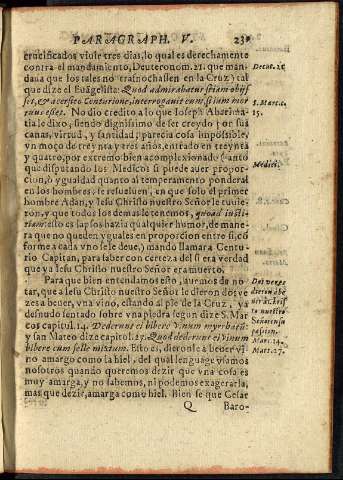 PARAGRAPH. V.
crucificados viuir tres dias, lo qual es derechamente
contra el mandamiento, Deuteronom. 21. que man-
daua que los tales no trasnochassen en la Cruz) tal
que dize el Euangelista: Quod admirabatur si iam obijs
set, & accersito Centurione, interrogauit eum, si iam mor
tuus esset. No dio credito a lo que Ioseph Abarima-
tia le dixo, siendo dignissimo de ser creydo por sus
canas, virtud, y santidad, parecia cosa impossible,
vn moço de treynta y tres años, entrado en treynta
y quatro, por extremo bien acomplexionado (tanto
que disputando los Medicos si puede auer propor-
cion, ò ygualdad quanto al temperamento ponderal
en los hombres, se resueluen, en que solo el primer
hombre Adan, y Iesu Christo nuestro Señor le tuuie-
ron, y que todos los demas le tenemos, quoad iusti-
tiam: esto es lapsos hazia qualquier humor, de mane-
ra que no queden yguales en proporcion entre si, cō
forme a cada vno se le deue,) mandò llamar a Centu-
rio Capitan, para saber con certeza del si era verdad
que ya Iesu Christo nuestro Señor era muerto.
Para que bien entendamos esto, auremos de no-
tar, que a Iesu Christo nuestro Señor le dieron dos ve
zes a beuer, vna vino, estando al pie de la Cruz, ya
desnudo sentado sobre vna piedra segun dize S. Mar
cos capitul. 14. Dederunt ei bibere vinum myrrhatū:
y san Mateo dize capitul. 27. Quod dederunt ei vinum
bibere cum felle mixtum. Esto es, dieronle a beuer vi
no amargo como la hiel, del qual lenguage vsamos
nosotros quando queremos dezir que vna cosa es
muy amarga, y no sabemos, ni podemos exagerarla,
mas que dezir, amarga como hiel. Bien se que Cesar
Q Baro-
Deut. 21
S. Marc. c.
15.
Medici.
Dos vezes
dieron a be
uer a Christ
to nuestro
Señor en su
passion.
Marc. 14.
Mat. 27.